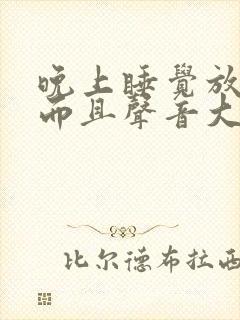 晚上睡覺放
而且聲音大
比尔德布拉西